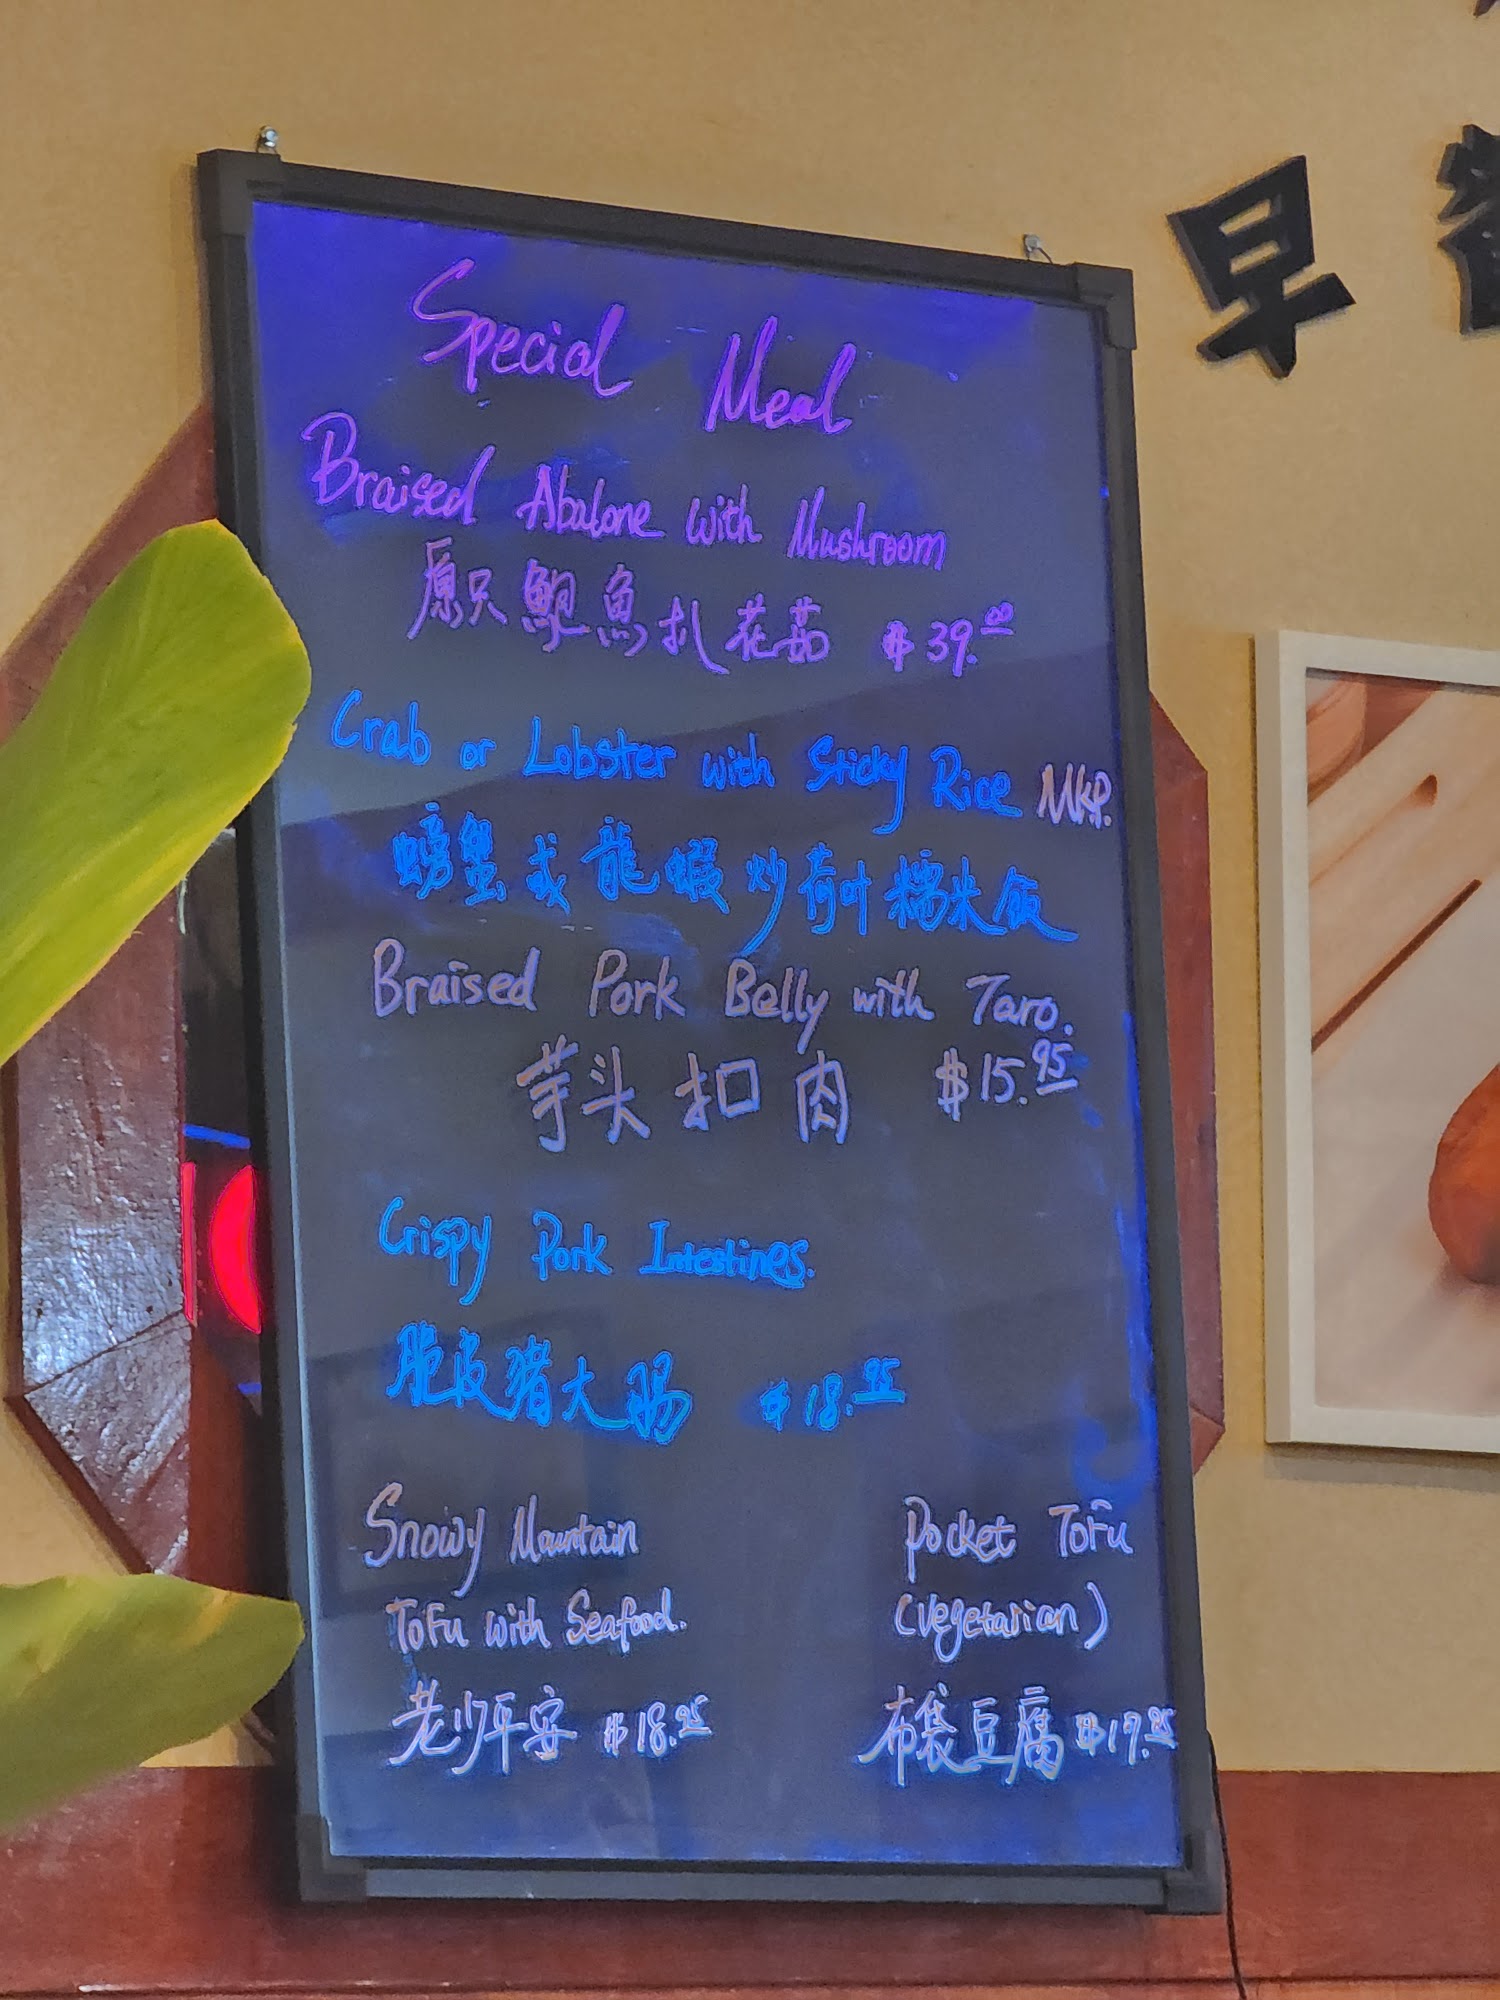 Special Meal
Braised Abalone with Mushroom
原只鮑魚扒花菇 $39.00
Crab or Lobster with Sticky Rice Mkp.
螃蟹或龍蝦炒荷叶糯米飯
Braised Pork Belly with Taro.
芋头扣肉 $15.95
Crispy Pork Intestines.
脆皮猪大肠 $18.95
Snowy Mountain
Tofu with Seafood.
老少平安 $18.95
Pocket Tofu
(Vegetarian)
布袋豆腐 $17.95
早